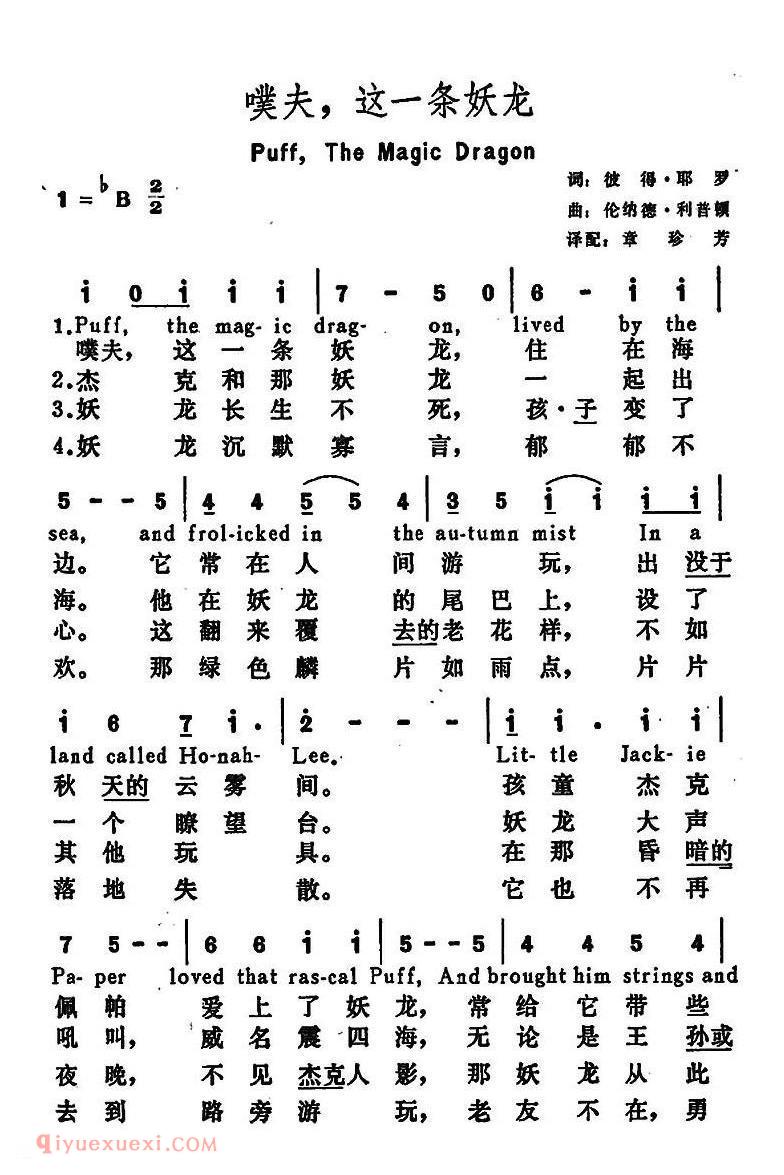 噗夫，这一条妖龙
Puff, The Magic Dragon
1 = ♭B 2/2
词：彼得·耶罗
曲：伦纳德·利普顿
译配：章珍芳
i 0 i i i | 7 - 5 0 | 6 - i i |
1.Puff, the mag-ic drag-on, lived by the
噗夫，这一条妖龙，住在海
2.杰克和那妖龙一起出
3.妖龙长生不死，孩·子变了
4.妖龙沉默寡言，郁郁不
5 - - 5 | 4 4 5 5 4 | 3 5 i i i i |
sea, and frol-icked in the au-tumn mist In a
边。它常在人间游玩，出没于
海。他在妖龙的尾巴上，设了
心。这翻来覆去的老花样，不如
欢。那绿色麟片如雨点，片片
i 6 7 i. | 2 - - - | i i. i i |
land called Ho-nah-Lee. Lit-tle Jack-ie
秋天的云雾间。孩童杰克
一个瞭望台。妖龙大声
其他玩具。在那昏暗的
落地失散。它也不再
7 5 - - | 6 6 i i | 5 - - 5 | 4 4 5 4 |
Pa-per loved that ras-cal Puff, And brought him strings and
佩帕爱上了妖龙，常给它带些
吼叫，威名震四海，无论是王孙或
夜晚，不见杰克人影，那妖龙从此
去到路旁游玩，老友不在，勇
qiyuexuexi.com